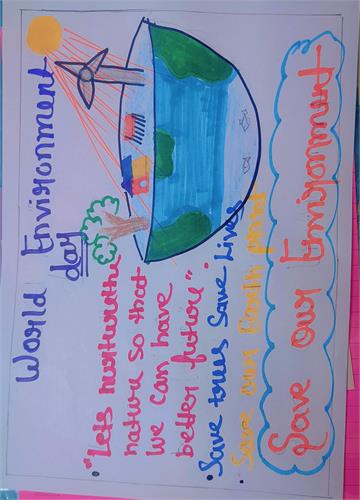 World Environment
day
"Lets nurturethe
nature so that
we can have
better future".
• Save trees Save Lives
• Save our Earth
Save our Environment